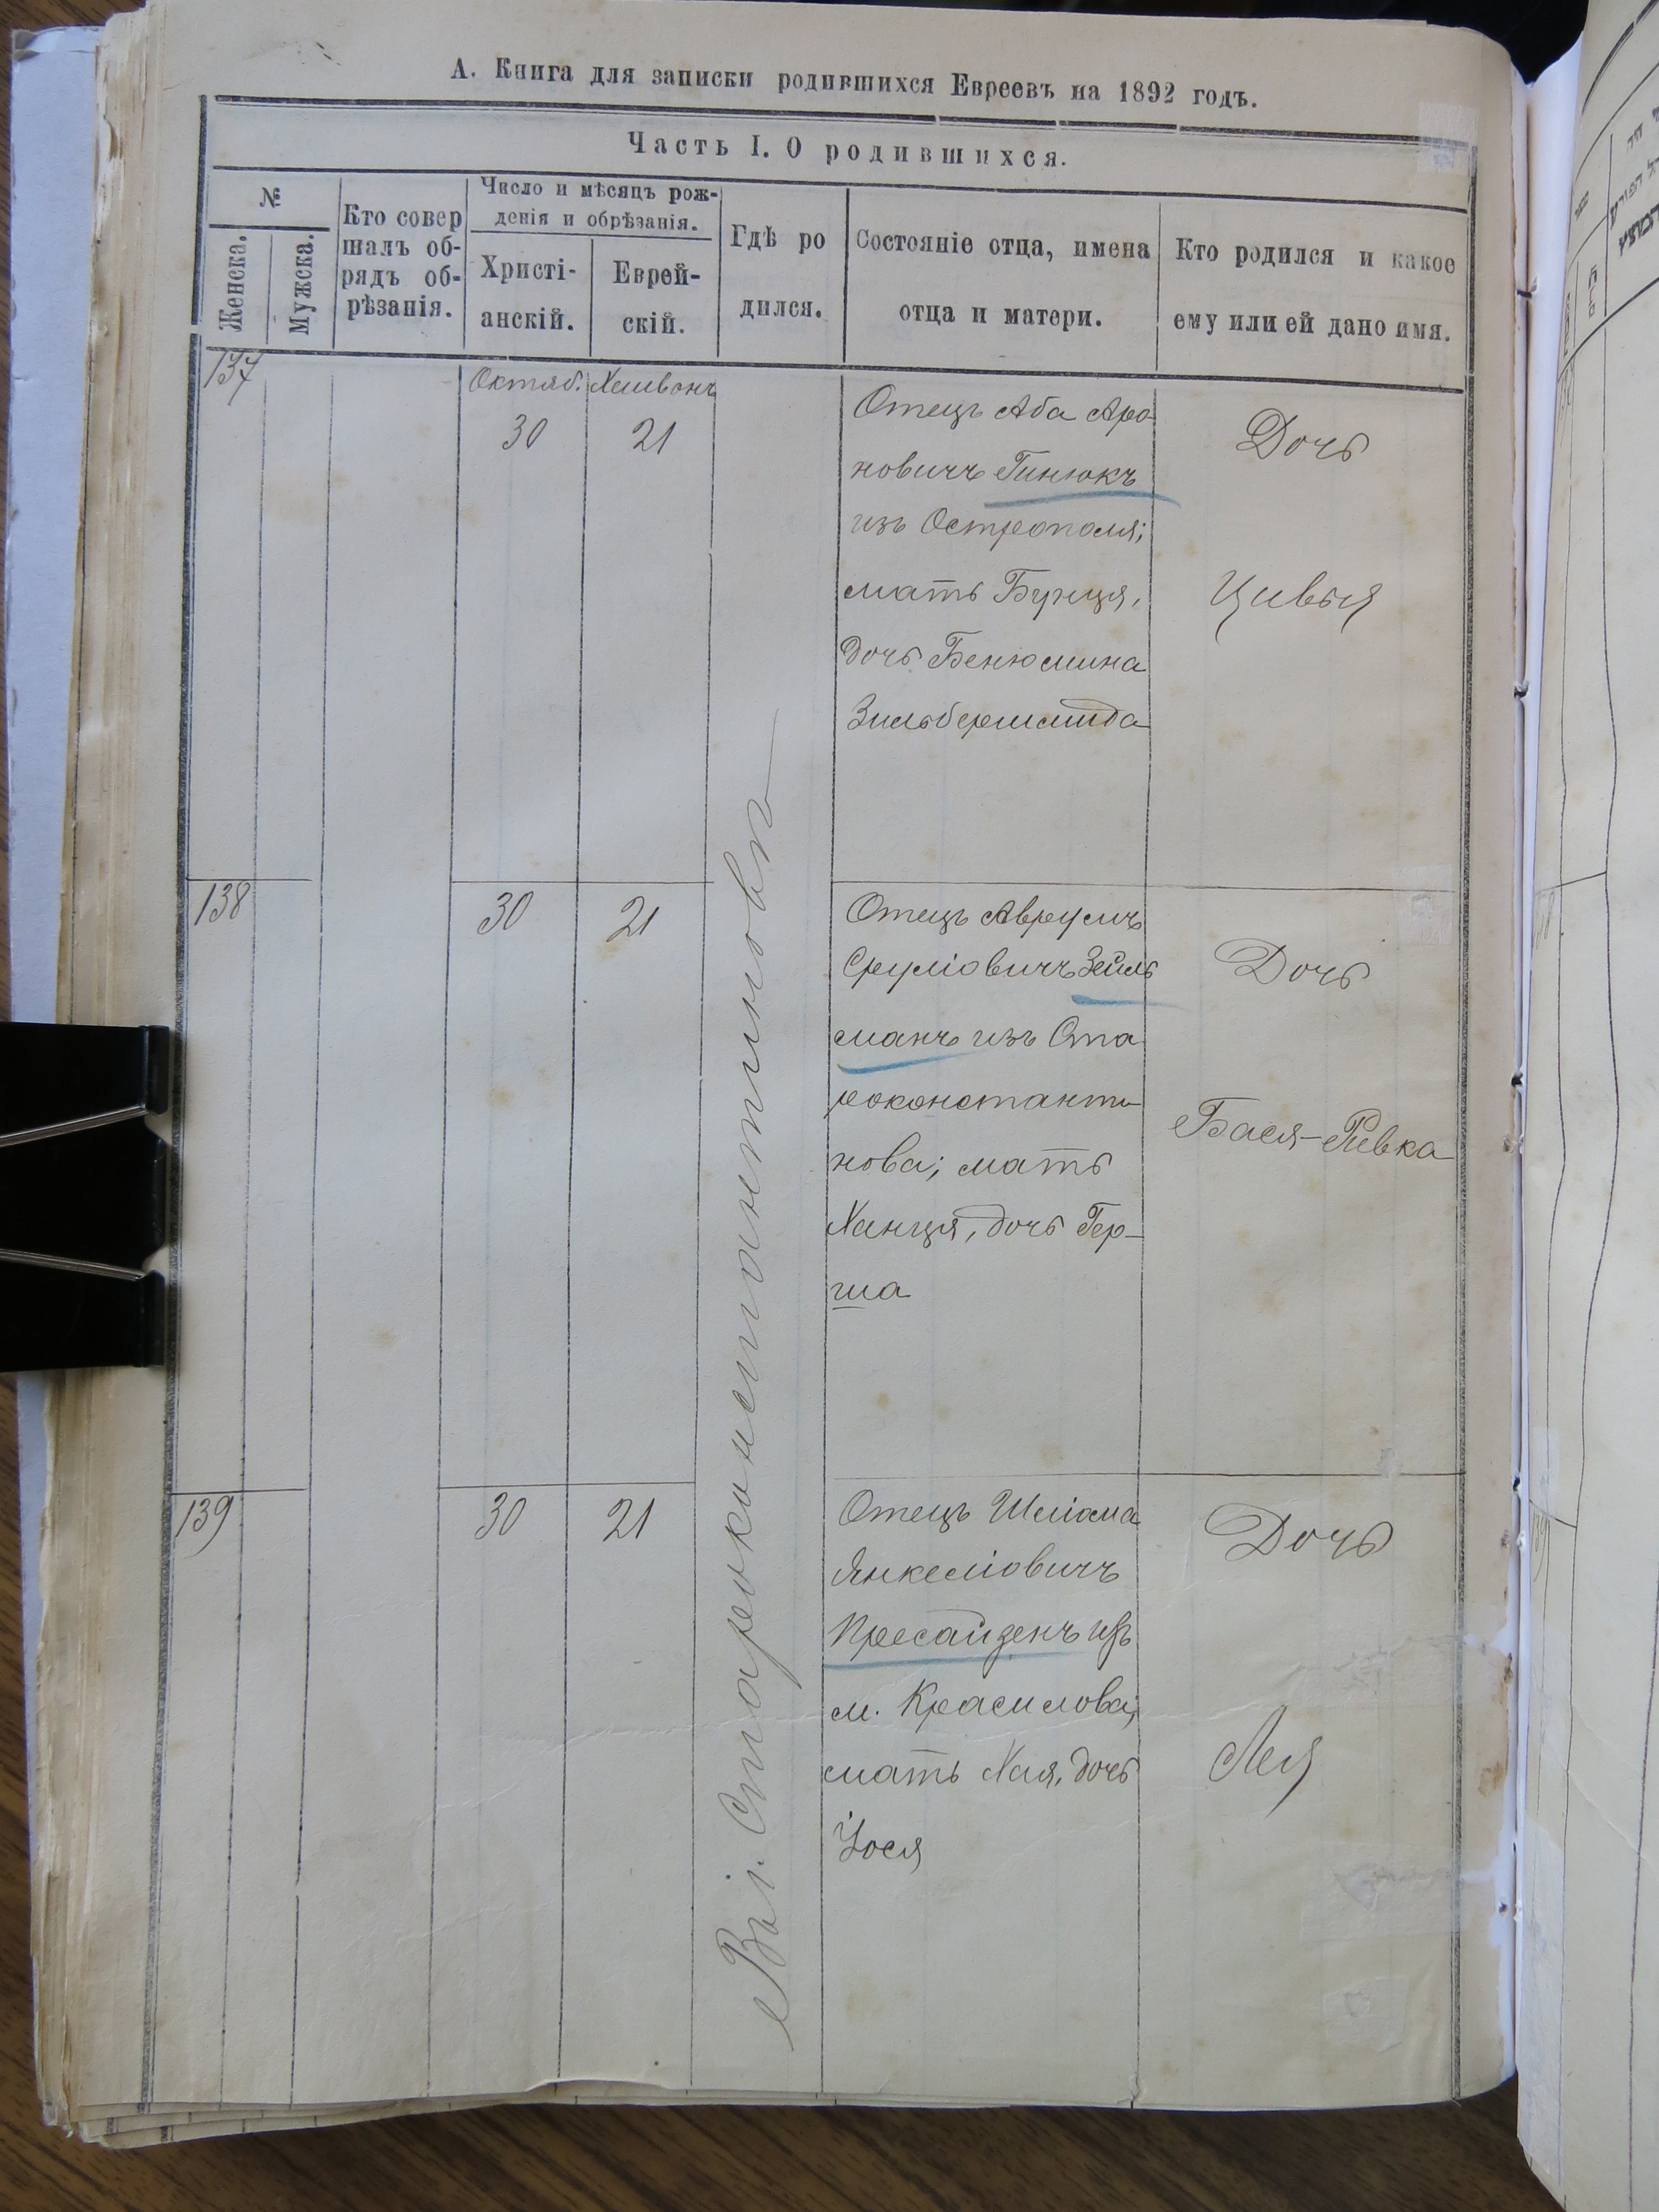 А. Книга для записки родившихся Евреевъ на 1892 годъ.
Часть I. О родившихся.
№
Женска.
Мужска.
Кто совер
шалъ об-
рядъ об-
рѣзанія.
Число и мѣсяцъ рож-
денія и обрѣзанія.
Христі-
анскій.
Еврей-
скій.
Гдѣ ро
дился.
Состояніе отца, имена
отца и матери.
Кто родился и какое
ему или ей дано имя.
137
Октяб.
30
Хешвонъ
21
Отецъ Аба Аро
новичъ Гинюкъ
изъ Острополя;
мать Бунця,
дочь Бенюмина
Зильбершмида
Дочь
Цивья
Въ г. Староконстантиновъ
138
30
21
Отецъ Аврумъ
Сруліовичъ Зейль
манъ изъ Ста
роконстанти
нова; мать
Ханця, дочь Гер-
ша
Дочь
Бася-Ривка
139
30
21
Отецъ Шліома
Янкеліовичъ
Пресайзенъ изъ
м. Красилова;
мать Хая, дочь
Іося
Дочь
Лея